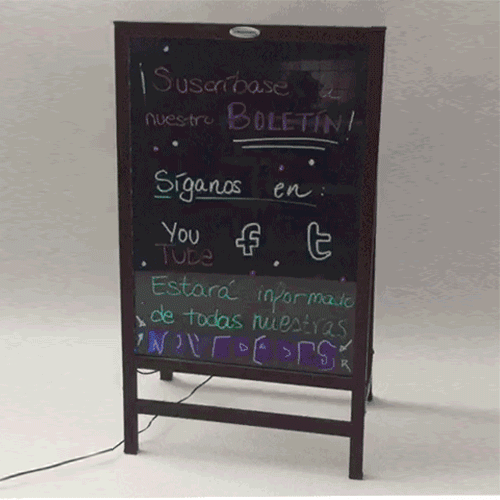 ¡Suscríbase a
nuestro BOLETÍN!
Síganos en:
You f t
Tube
Estará informado
de todas nuestras
NOVEDADES